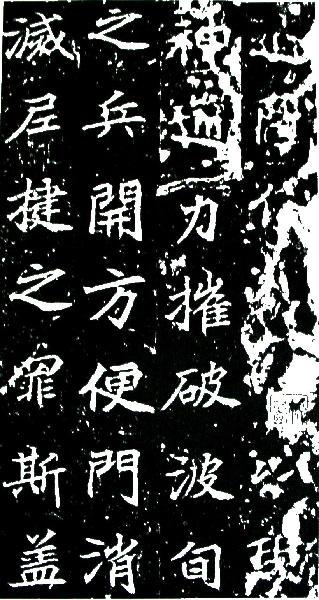 以現
神通力摧破波旬
之兵開方便門消
滅尼揵之罪斯盖